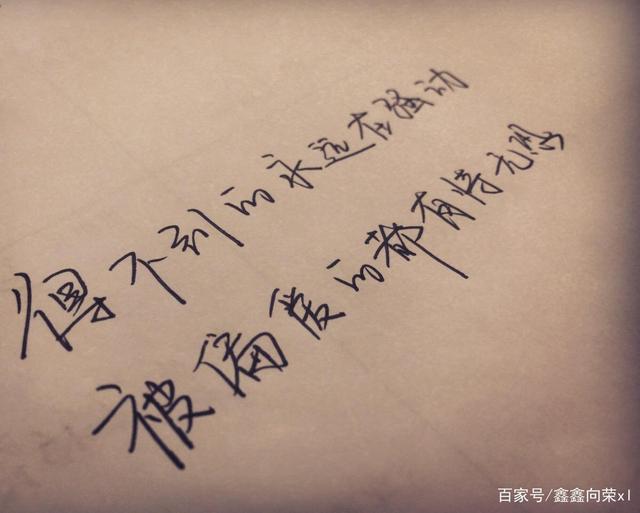 得不到的永远在骚动
被偏爱的都有恃无恐
百家号/鑫鑫向荣xl